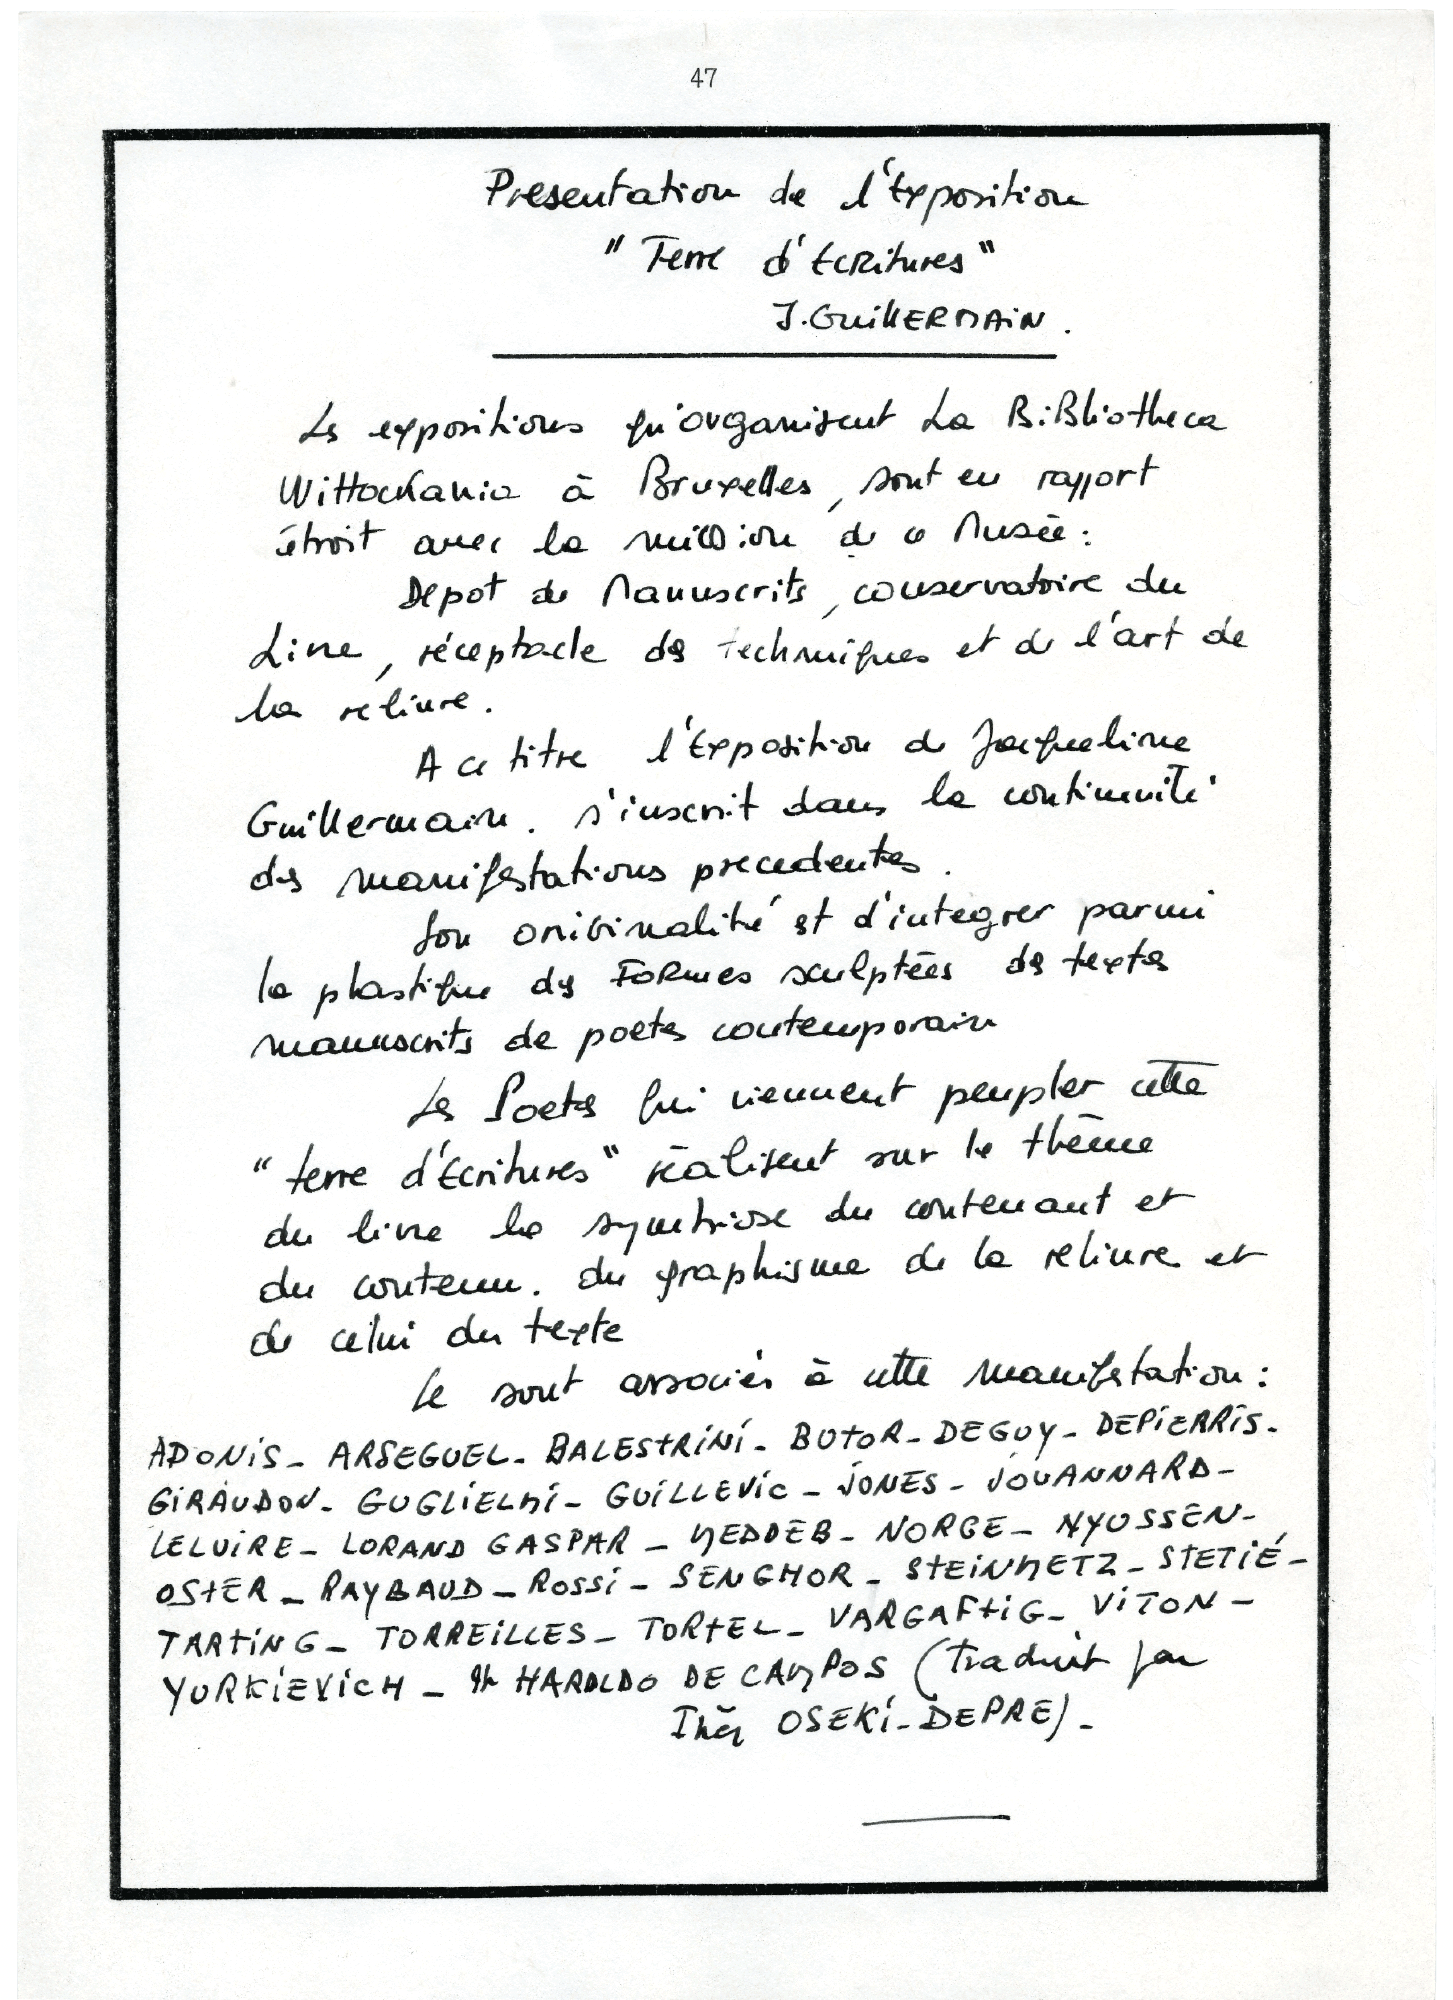 47
Presentation de l'Exposition
" Terre d'Ecritures "
J. GuillERMAiN.
Les expositions qu'organisent La BiBliotheca
Wittockania à Bruxelles, sont en rapport
étroit avec la mission de ce Musée :
Depot de Manuscrits, conservatoire du
Livre, réceptacle des techniques et de l'art de
la reliure.
A ce titre l'Exposition de Jacqueline
Guillermain. s'inscrit dans la continuité
des manifestations precedentes.
Son originalité est d'integrer parmi
la plastique des Formes sculptées des textes
manuscrits de poetes contemporain
Les Poetes qui viennent peupler cette
" terre d'Ecritures " réalisent sur le thème
du livre la symbiose du contenant et
du contenu. du graphisme de la reliure et
de celui du texte
Se sont associés à cette manifestation :
ADONIS - ARSEGUEL - BALESTRINI - BUTOR - DEGUY - DEPIERRIS -
GIRAUDON - GUGLIELMI - GUILLEVIC - JONES - JOUANNARD -
LELUIRE - LORAND GASPAR - MEDDEB - NORGE - NYUSSEN -
OSTER - RAYBAUD - ROSSI - SENGHOR - STEINMETZ - STETIÉ -
TARTING - TORREILLES - TORTEL - VARGAFTIG - VITON -
YURKIEVICH - HAROLDO DE CAMPOS (traduit par
Inês OSEKI-DEPRE) -